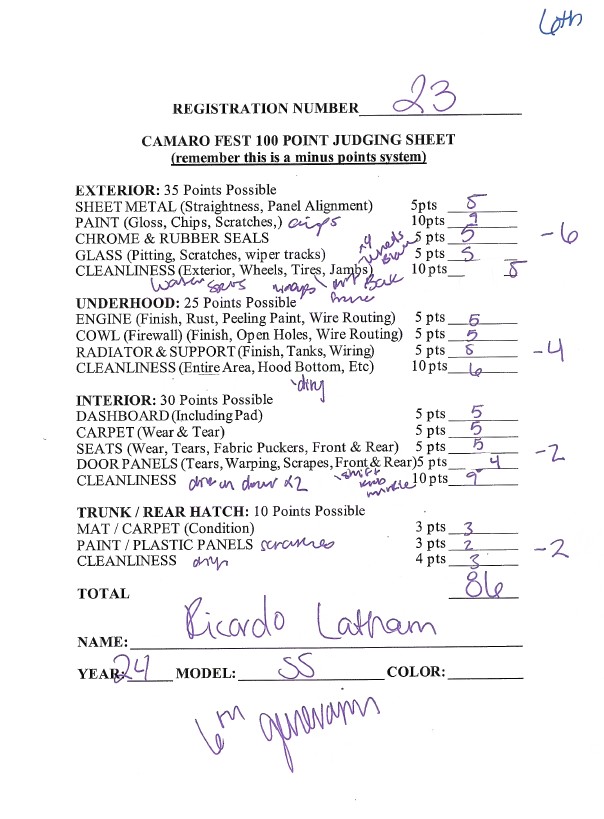 6th
REGISTRATION NUMBER 23
CAMARO FEST 100 POINT JUDGING SHEET
(remember this is a minus points system)
EXTERIOR: 35 Points Possible
SHEET METAL (Straightness, Panel Alignment) 5pts 5
PAINT (Gloss, Chips, Scratches,) chips 10pts 9
CHROME & RUBBER SEALS x4 wheels 5 pts 5 -6
GLASS (Pitting, Scratches, wiper tracks) 5 pts 5
CLEANLINESS (Exterior, Wheels, Tires, Jambs) 10 pts
water
UNDERHOOD: 25 Points Possible
ENGINE (Finish, Rust, Peeling Paint, Wire Routing) 5 pts 5
COWL (Firewall) (Finish, Open Holes, Wire Routing) 5 pts 5
RADIATOR & SUPPORT (Finish, Tanks, Wiring) 5 pts 5 -4
CLEANLINESS (Entire Area, Hood Bottom, Etc) 10 pts 6
dirty
INTERIOR: 30 Points Possible
DASHBOARD (Including Pad) 5 pts 5
CARPET (Wear & Tear) 5 pts 5
SEATS (Wear, Tears, Fabric Puckers, Front & Rear) 5 pts 5 -2
DOOR PANELS (Tears, Warping, Scrapes, Front & Rear) 5 pts 4
CLEANLINESS x2 shift knob 10 pts 9
TRUNK / REAR HATCH: 10 Points Possible
MAT / CARPET (Condition) 3 pts 3
PAINT / PLASTIC PANELS scratches 3 pts 2 -2
CLEANLINESS 4 pts 3
TOTAL 86
NAME: Ricardo Latham
YEAR: 24 MODEL: SS COLOR:
6th